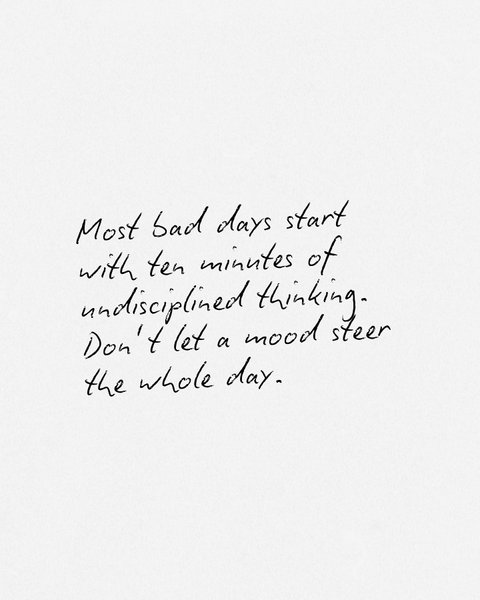 Most bad days start
with ten minutes of
undisciplined thinking.
Don't let a mood steer
the whole day.